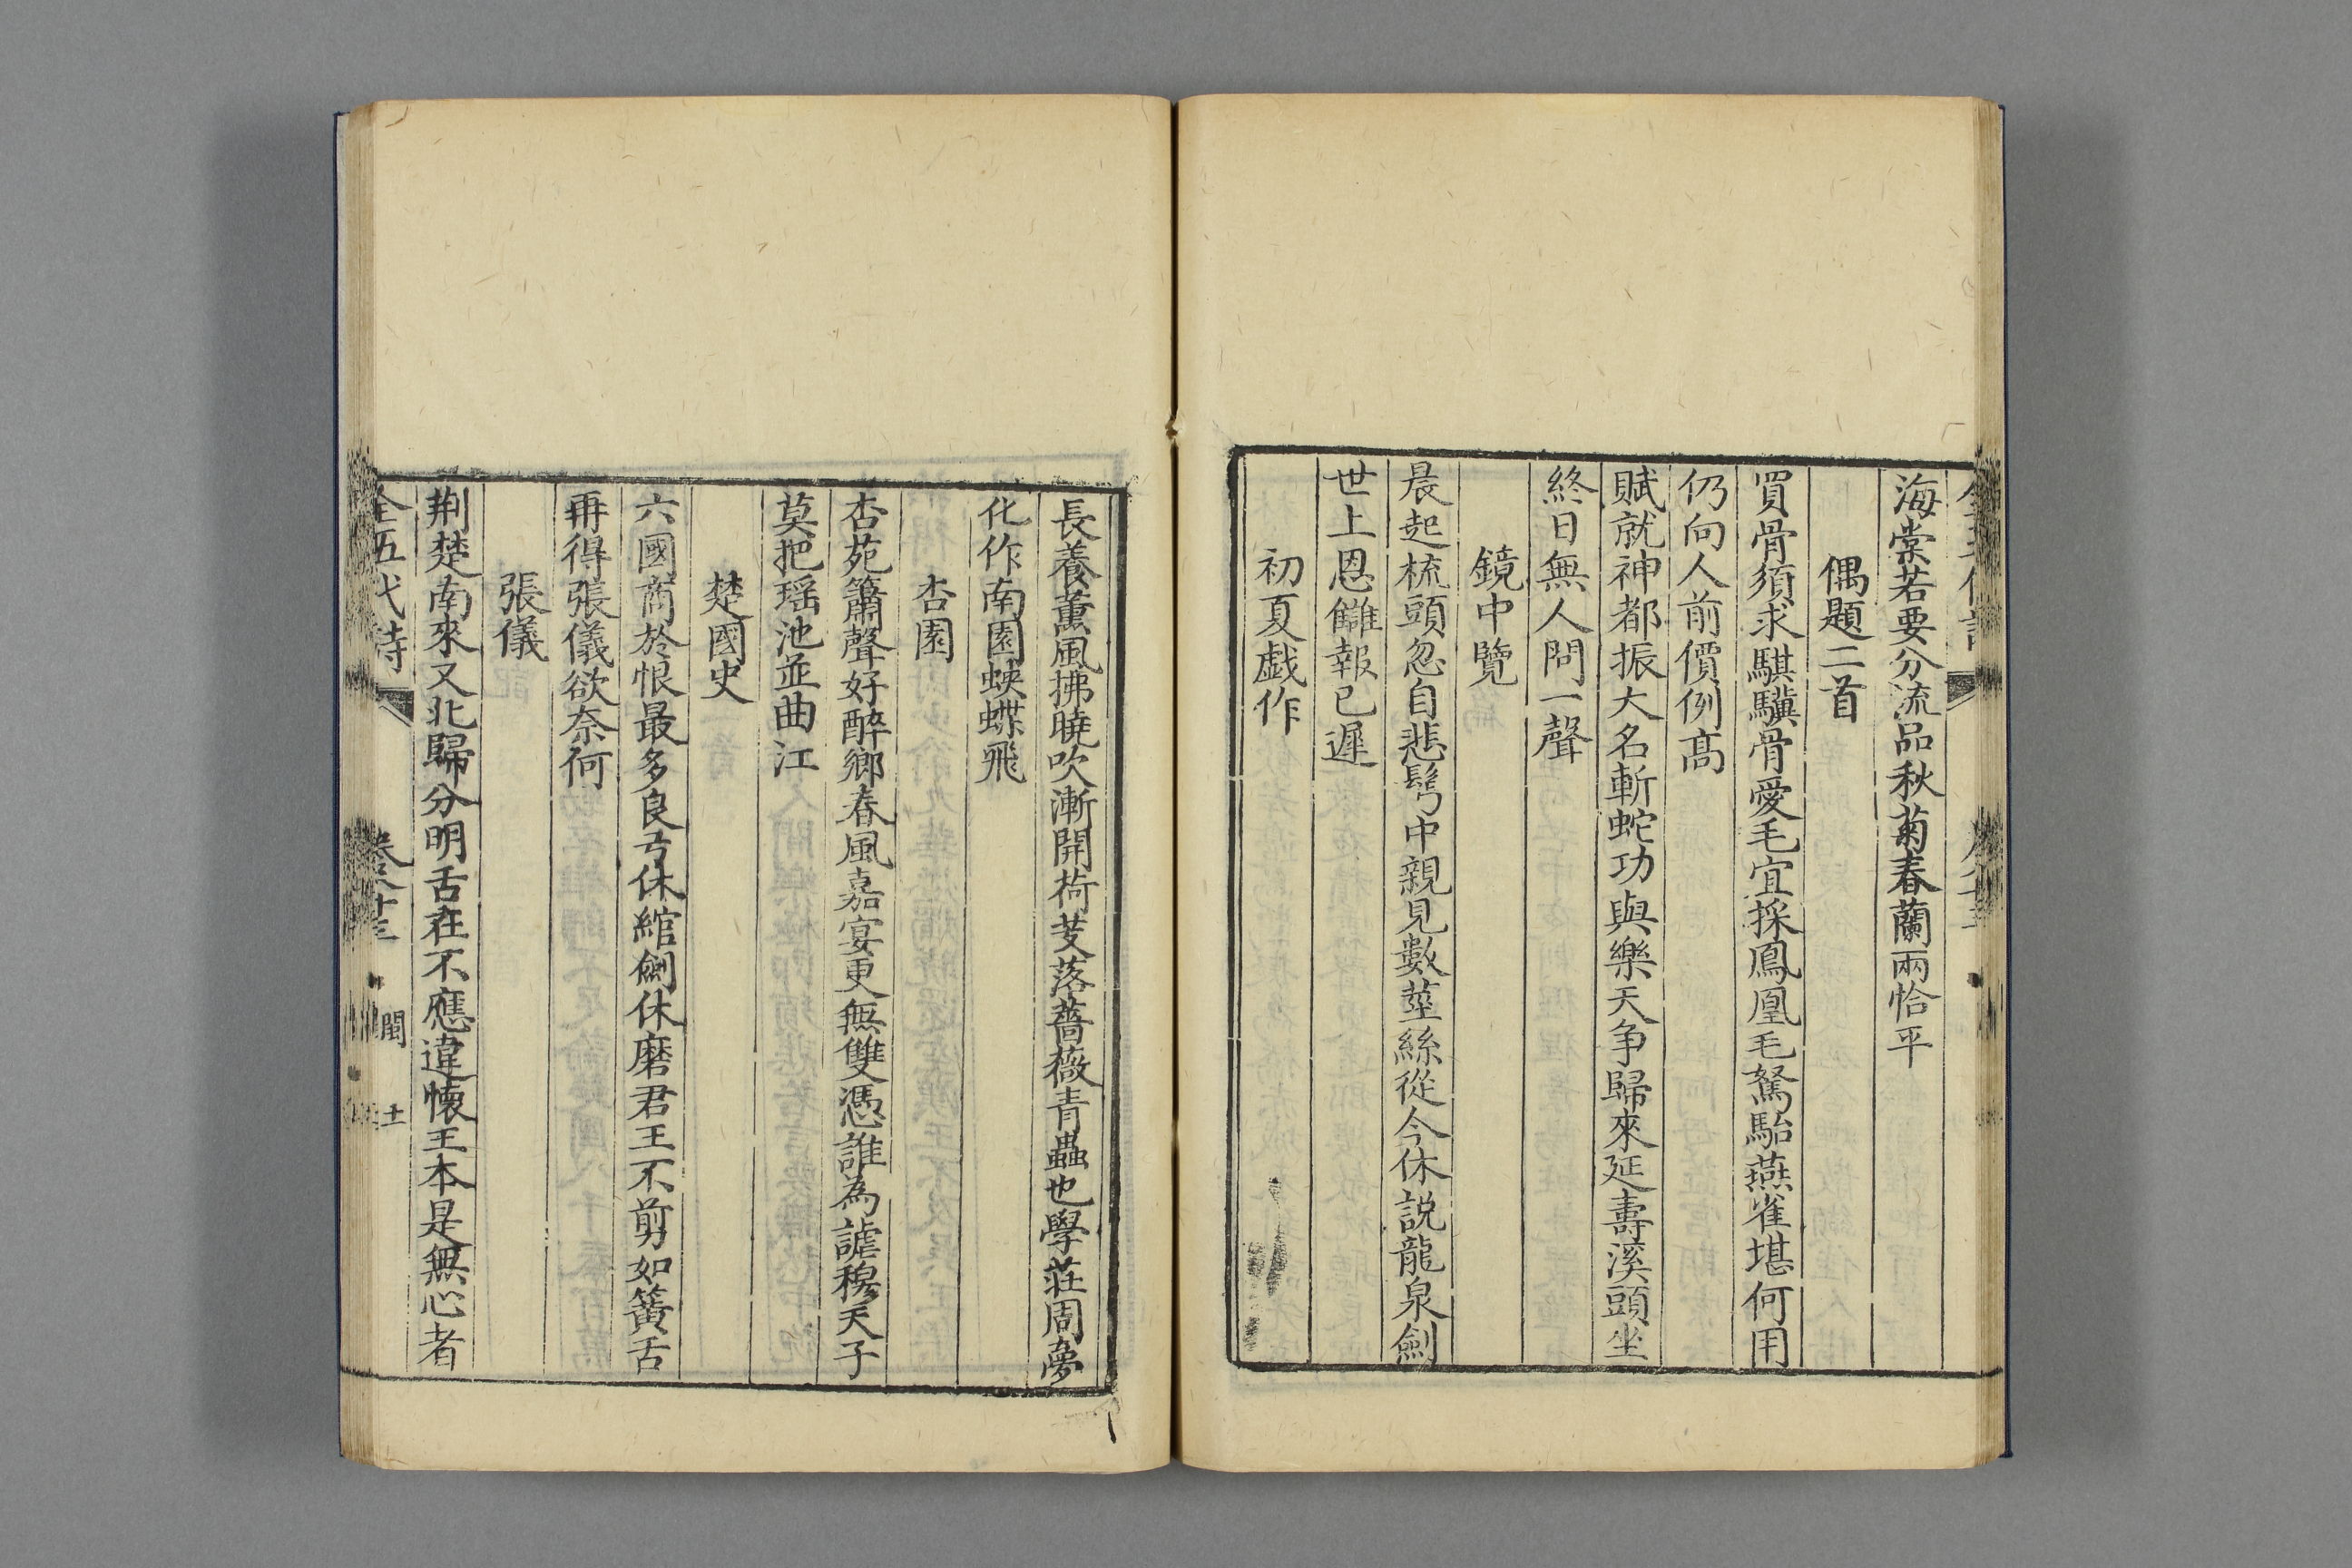 海棠若要分流品秋菊春蘭兩恰平
偶題二首
買骨須求騏驥骨愛毛宜採鳳凰毛駑駘燕雀堪何用
仍向人前價例髙
賦就神都振大名斬蛇功與樂天争歸來延壽溪頭坐
終日無人問一聲
鏡中覽
晨起梳頭忽自悲髩中親見數莖絲從今休説龍泉劍
世上恩讎報已遲
初夏戯作
長養薰風拂曉吹漸開荷芰落薔薇青蟲也學莊周夢
化作南園蛺蝶飛
杏園
杏苑簫聲好醉鄉春風嘉宴更無雙憑誰為謔穆天子
莫把瑶池並曲江
楚國史
六國啇於恨最多良弓休綰劍休磨君王不剪如簧舌
再得張儀欲奈何
張儀
荆楚南來又北歸分明舌在不應違懷王本是無心者
全五代詩
閩